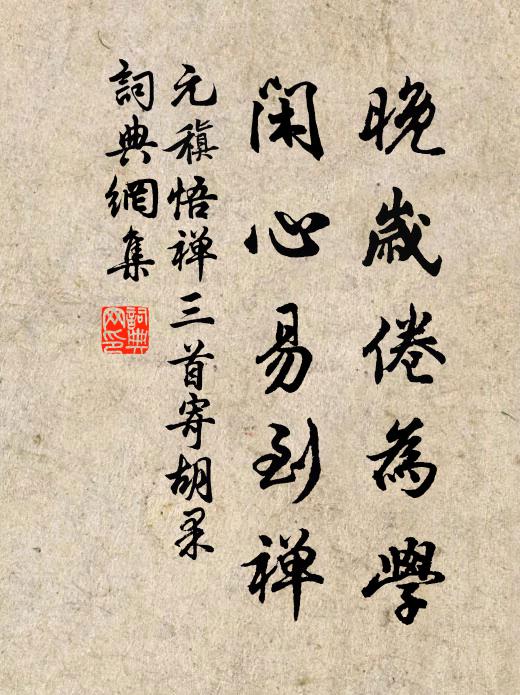 晚歲倦為學
閑心易到禅
元稹悟禅三首寄胡果
詞典網集
詞典網印